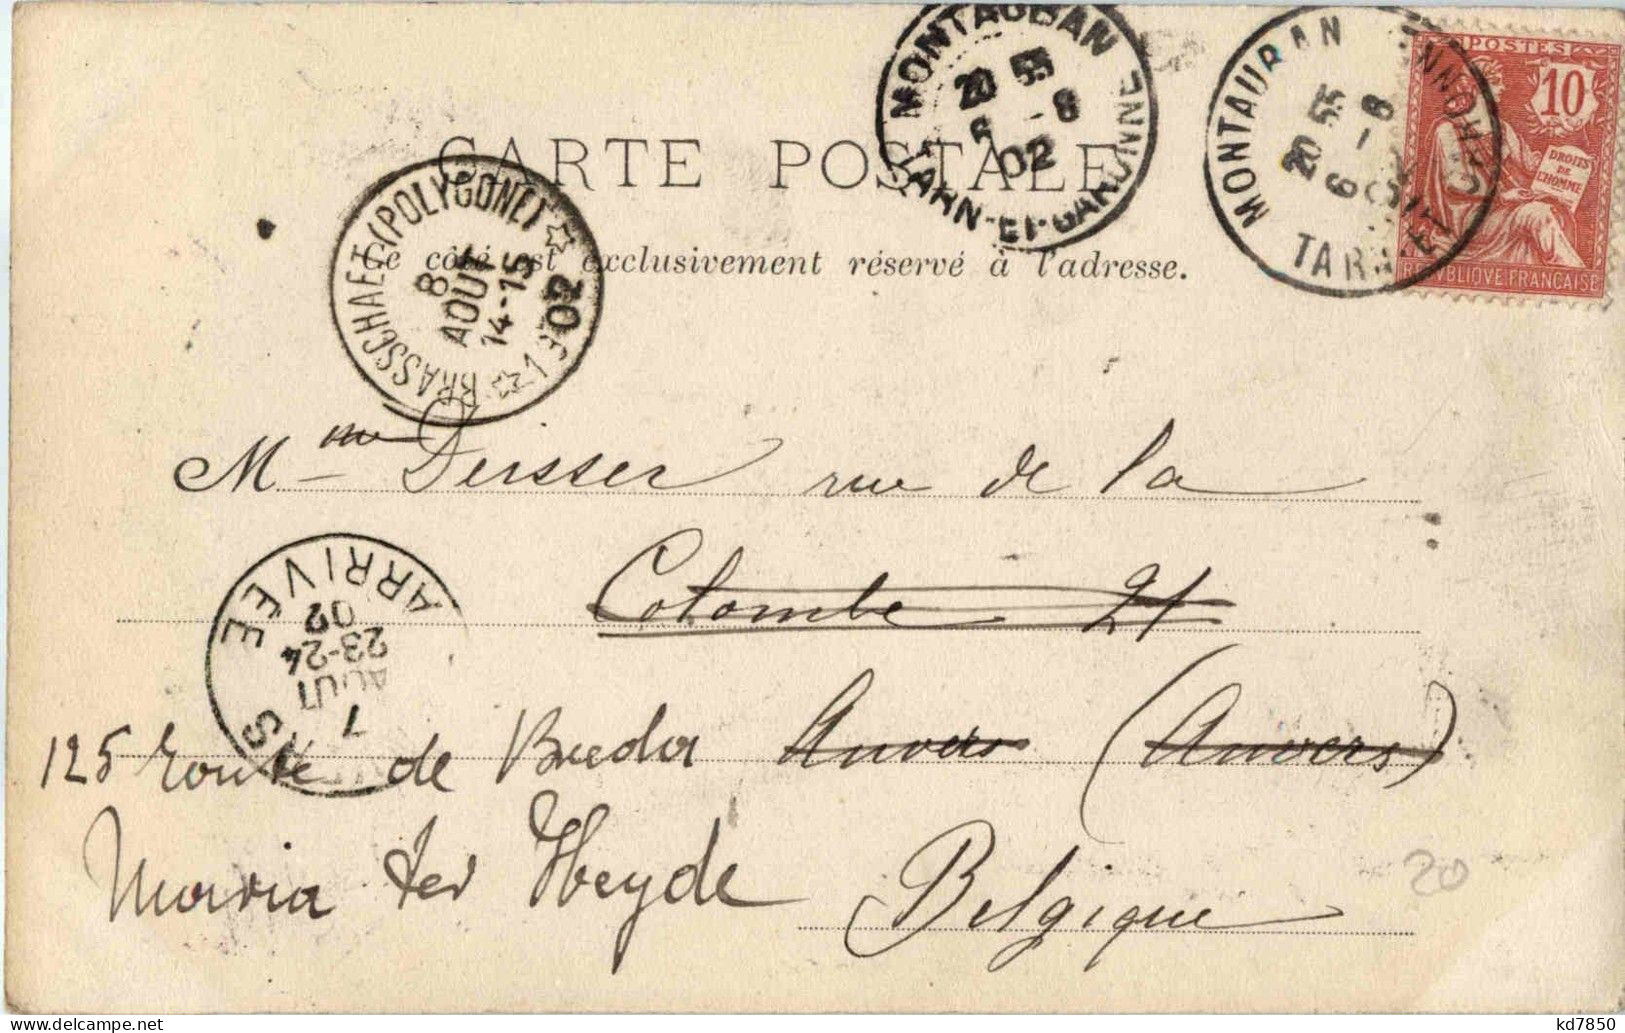 CARTE POSTALE
Ce côté est exclusivement réservé à l'adresse.
MONTAUBAN
20 55
6 -8
02
TARN-ET-GARONNE
MONTAUBAN
20 55
6 -8
TARN-ET-GARONNE
POSTES
10
DROITS
DE
L'HOMME
REPUBLIQUE FRANÇAISE
BRASSCHAET (POLYGONE)
8
AOUT
14-15
02
Mme Dersser rue de la
Colombe 21
125 route de Breda Anvers (Anvers)
Maria ter Heyde Belgique
ARRIVÉE
7
AOUT
23-24
02
20
kd7850